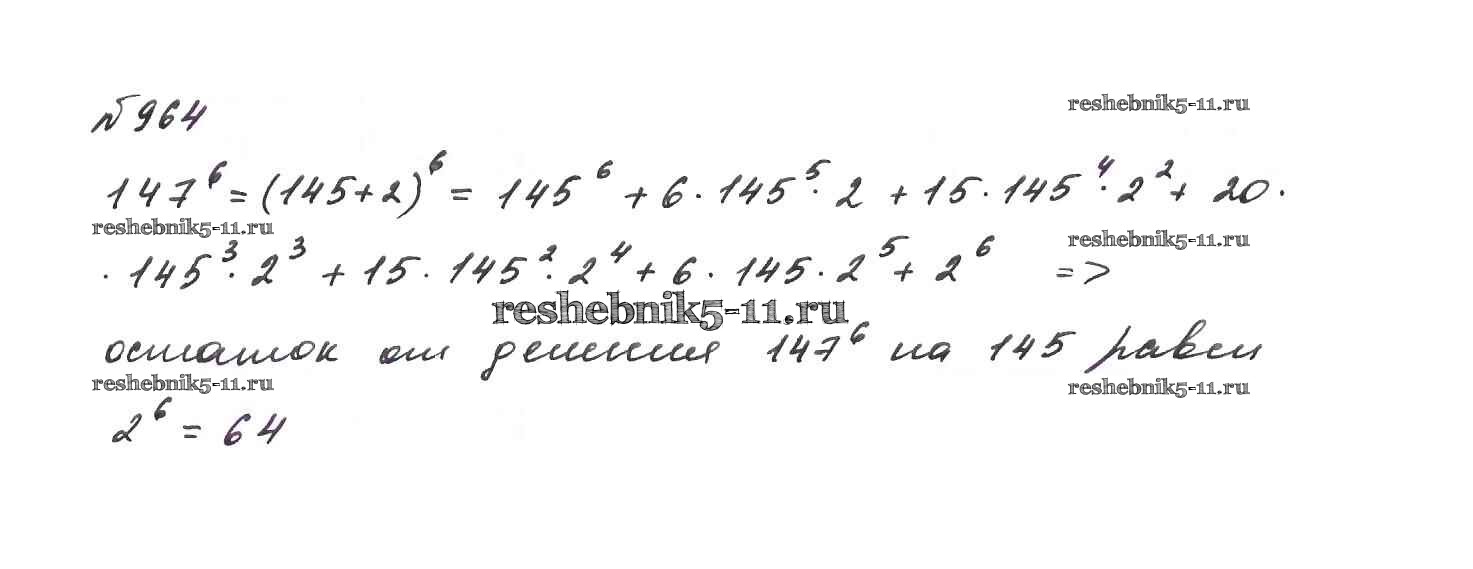 №964
reshebnik5-11.ru
147⁶ = (145+2)⁶ = 145⁶ + 6·145⁵·2 + 15·145⁴·2² + 20·
reshebnik5-11.ru
reshebnik5-11.ru
·145³·2³ + 15·145²·2⁴ + 6·145·2⁵ + 2⁶ =>
reshebnik5-11.ru
остаток от деления 147⁶ на 145 равен
reshebnik5-11.ru
reshebnik5-11.ru
2⁶ = 64